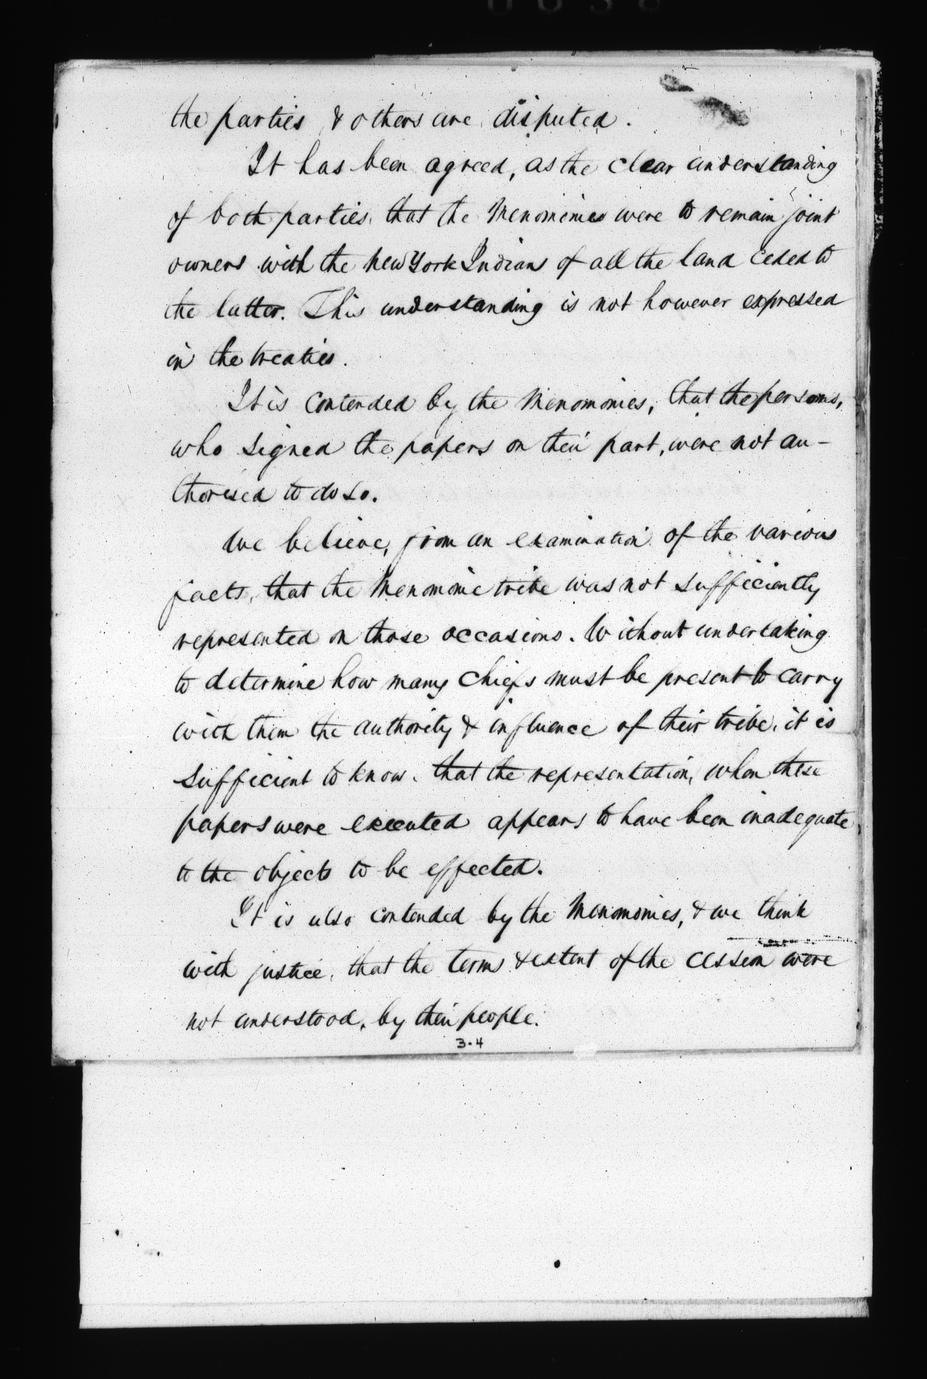 the parties & others are disputed.
It has been agreed, as the clear understanding
of both parties, that the Menominies were to remain joint
owners with the New York Indians of all the land ceded to
the latter. This understanding is not however expressed
in the treaties.
It is contended by the Menomonies, that the persons,
who signed the papers on their part, were not au-
thorised to do so.
We believe, from an examination of the various
facts, that the Menomonie tribe was not sufficiently
represented on those occasions. Without undertaking
to determine how many chiefs must be present to carry
with them the authority & influence of their tribe, it is
sufficient to know, that the representation, when these
papers were executed appears to have been inadequate
to the objects to be effected.
It is also contended by the Menomonies, & we think
with justice, that the terms & extent of the cession were
not understood, by their people.
3.4